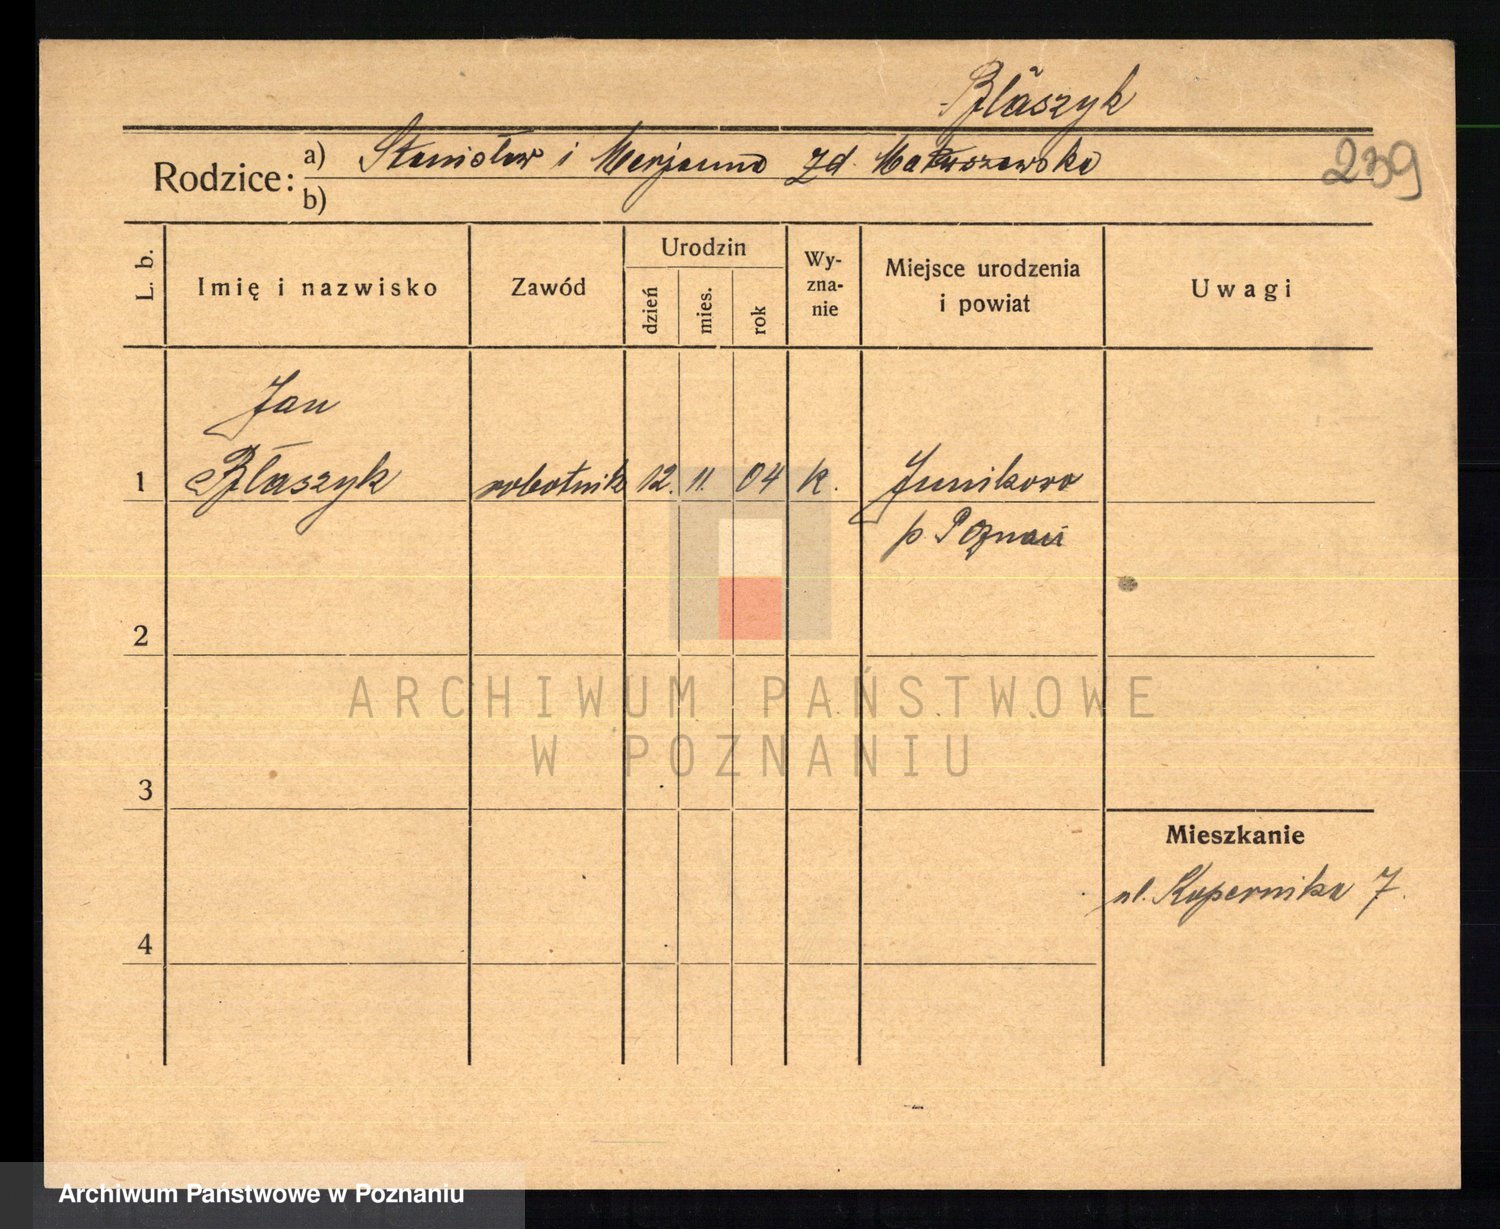 Błaszyk
Rodzice:
a) Stanisław i Marjanna zd. Matuszewska
239
b)
L. b.
Imię i nazwisko
Zawód
Urodzin
dzień
mies.
rok
Wy-
zna-
nie
Miejsce urodzenia
i powiat
Uwagi
Jan
1 Błaszyk robotnik 12. 11. 04 k. Junikowo
p Poznań
2
ARCHIWUM PAŃSTWOWE
W POZNANIU
3
Mieszkanie
ul. Kopernika 7.
4
Archiwum Państwowe w Poznaniu